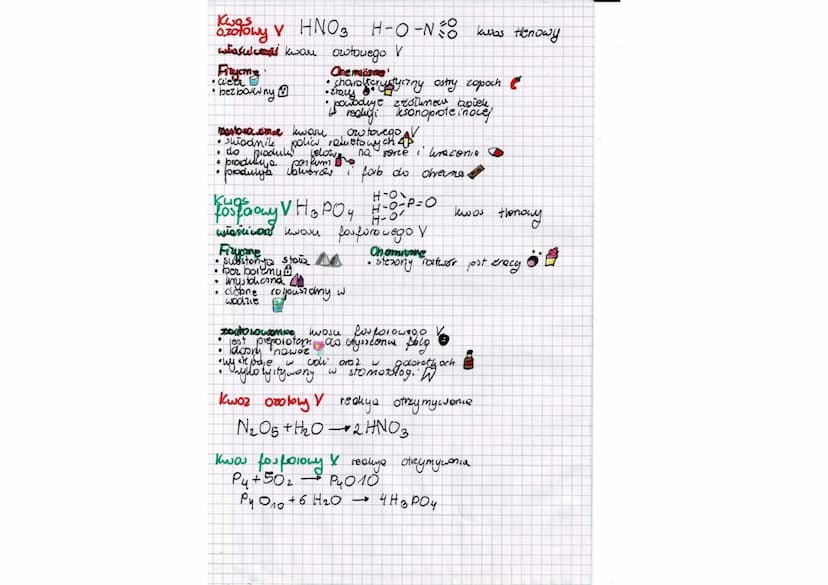 Kwas
azotowy V HNO3 H-O-N=O O kwas tlenowy
właściwości kwasu azotowego V
Fizyczne: Chemiczne:
• ciecz • charakterystyczny ostry zapach
• bezbarwny • żrący
• powoduje żółknięcie białek
w reakcji ksantoproteinowej
zastosowanie kwasu azotowego V
• składnik paliw rakietowych
• do produkcji leków na serce i krążenie
• produkcja perfum
• produkcja lakierów i farb do drewna
Kwas
fosforowy V H3PO4 H-O H-O-P=O H-O kwas tlenowy
właściwości kwasu fosforowego V
Fizyczne Chemiczne
• substancja stała • stężony roztwór jest żrący
• bezbarwny
• krystaliczna
• dobrze rozpuszczalny w
wodzie
zastosowanie kwasu fosforowego V
• jest preparatem do czyszczenia
• dobry nawóz
• występuje w coli oraz w
• wykorzystywany w stomatologi
Kwas azotowy V reakcja otrzymywania
N2O5+H2O → 2HNO3
Kwas fosforowy V reakcja otrzymywania
P4+5O2 → P4O10
P4O10+6H2O → 4H3PO4